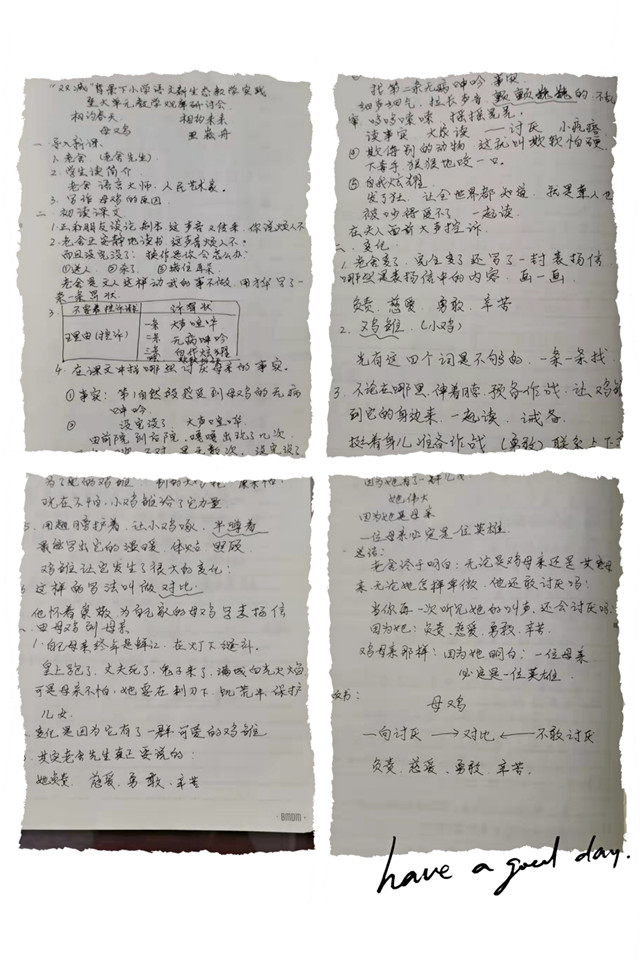 "双减"背景下小学语文新生态教学实践
暨大单元教学观摩研讨会
相约春天 相拥未来
母鸡
一、导入新课
1.老舍（老舍先生）
2.学生读简介
老舍 语言大师，人民艺术家。
3.写作母鸡的原因
二、初读课文
1.正和朋友谈论剧本 这声音又传来，你说烦人不
2.老舍正安静地读书 这声音烦人不。
而且没完没了：换作是你会怎么办：
①送人 ②杀了 ③堵住耳朵
老舍是文人这样动武的事不做，用方
一条一条罪状
3.
诉罪状
理由(控诉)
一条 大声喧哗
二条 无病呻吟
三条
4.在课文中找哪些讨厌母鸡的事实。
①事实：第1自然段感受到母鸡的无病
呻吟
② 没完没了 大声喧哗
由前院到后院，嘎嘎出现了几次
找第二条无病呻吟 事实
细声细气，拉长声音 颤颤巍巍的
读事实 大家读 ——讨厌 小疙瘩
④欺侮别的动物 这就叫欺软怕硬
下毒手 狠狠地咬一口。
⑤自我炫耀
发了狂，让全世界都知道，就是聋人也
被吵得受不了 一起读
在夫人面前大声控诉
三、变化
1.老舍变了，完全变了还写了一封表扬信
哪些是表扬信中的内容，画一画
负责 慈爱 勇敢 辛苦
2.鸡雏（小鸡）
光有这四个词是不够的，一条一条找
3.不论在哪里 伸着脖 预备作战，让鸡雏
到它的身边来，一起读，诫备
挺着身儿准备作战（勇敢）联系上下
现在不怕，小鸡雏给了它力量
5.用翅膀护着，让小鸡啄，半蹲着
最能写出它的温暖，体贴 照顾
鸡雏让它发生了很大的变化：
这样的写法叫做 对比
他怀着崇敬 为自家的母鸡写表扬信
由母鸡到母亲
1.自己母亲终年是鲜红，在灯下缝补。
皇上跑了，丈夫死了，鬼子来了，满城的是火焰
可是母亲不怕，她要在刺刀下，饥荒中，保护
儿女
变化是因为它有了一群可爱的鸡雏
其实老舍先生真正要说的：
她负责 慈爱、勇敢、辛苦
BMDM
因为她有了一群儿女
她伟大
因为她是母亲
一位母亲必定是一位英雄
总结：
老舍终于明白：无论是鸡母亲还是其他母
亲无论她怎样卑微，他还敢讨厌吗：
当你再一次听见她的叫声，还会讨厌吗：
因为她：负责、慈爱、勇敢、辛苦
鸡母亲那样：因为她明白：一位母亲
必定是一位英雄
板书：
母鸡
一向讨厌 → 对比 ← 不敢讨厌
负责、慈爱、勇敢、辛苦。
have a good day.